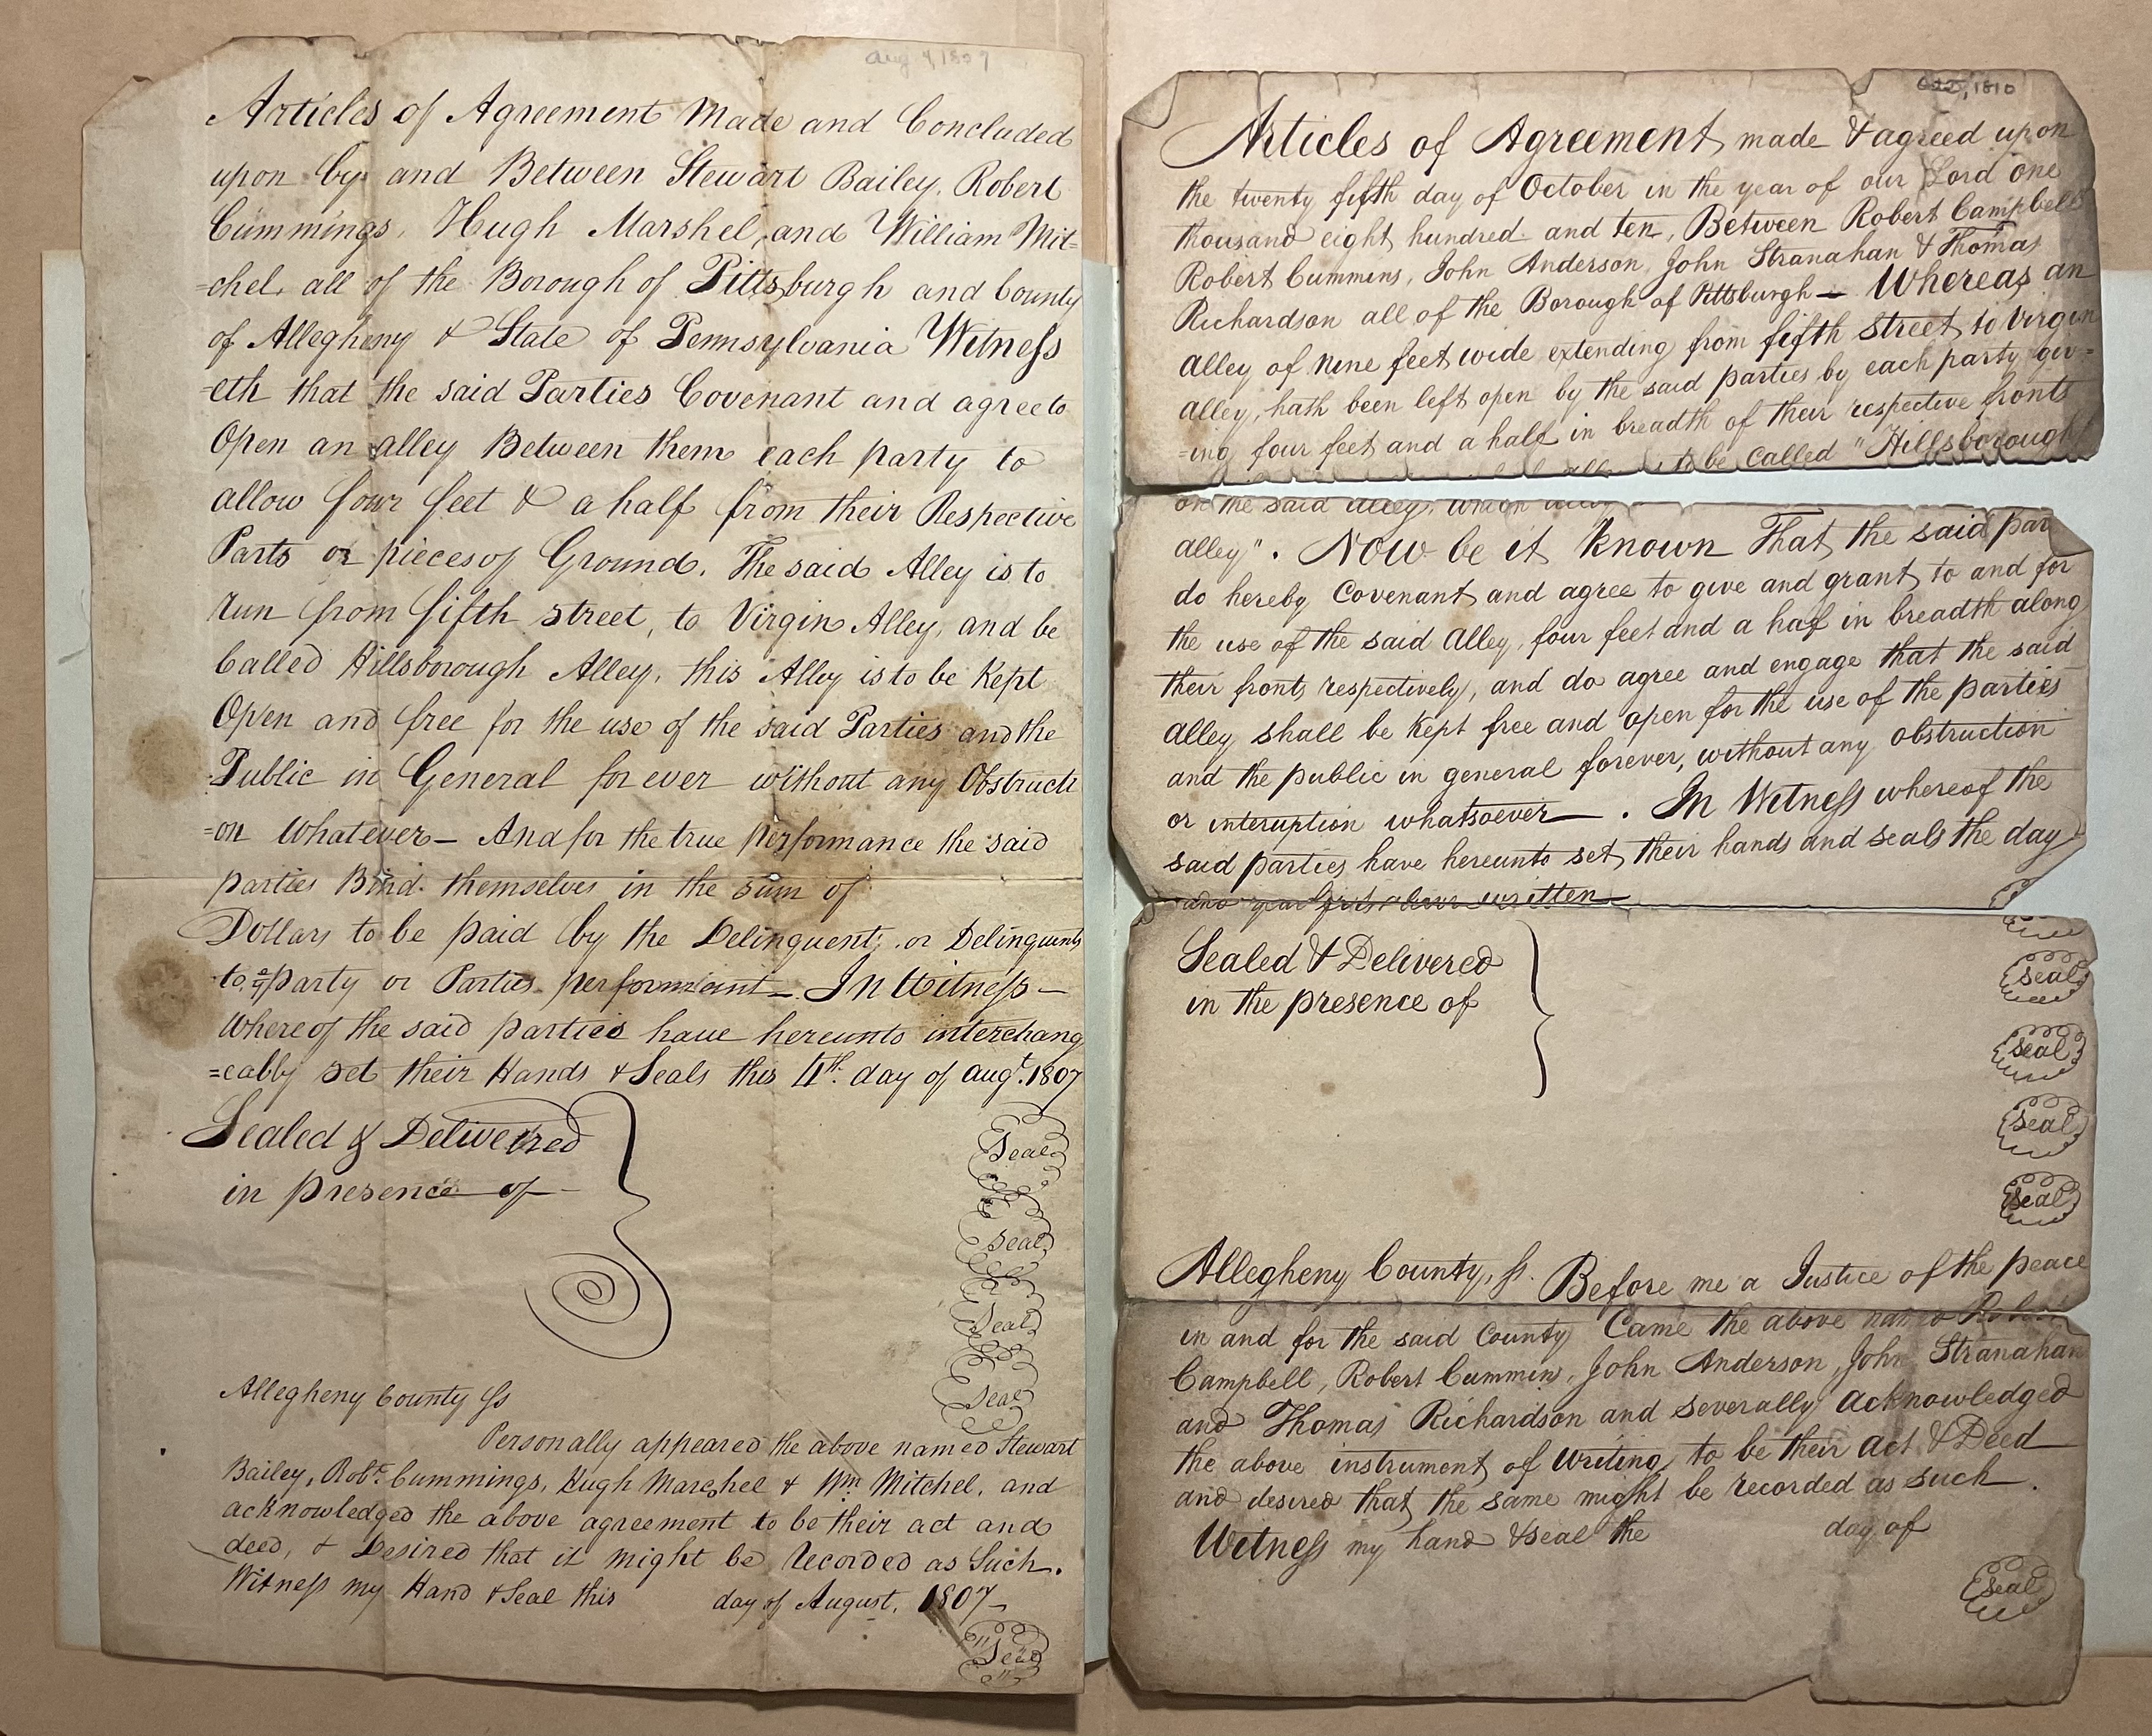 Aug 4, 1807
Articles of Agreement Made and Concluded
upon by and Between Stewart Bailey, Robert
Cummings, Hugh Marshel, and William Mit=
=chel, all of the Borough of Pittsburgh and County
of Allegheny & State of Pennsylvania Witness
=eth that the said Parties Covenant and agree to
Open an alley Between them each party to
allow four feet & a half from their Respective
Parts or pieces of Ground. The said Alley is to
run from fifth street, to Virgin Alley, and be
Called Hillsborough Alley, this Alley is to be Kept
Open and free for the use of the said Parties and the
Public in General for ever without any Obstructi
=on Whatever — And for the true performance the said
parties Bind themselves in the sum of
Dollars to be paid by the Delinquent, or Delinquents
to party or Parties In Witness —
Whereof the said parties have hereunto interchang
=eably set their Hands & Seals this 4th. day of augt. 1807
Sealed & Delivered
in presence of —
Seal
Seal
Seal
Seal
Allegheny County Ss
Personally appeared the above named Stewart
Bailey, Robt. Cummings, Hugh Marshel & Wm Mitchel, and
acknowledged the above agreement to be their act and
deed, & Desired that it might be recorded as Such.
Witness my Hand & Seal this day of August, 1807 —
Seal
Oct, 1810
Articles of Agreement, made & agreed upon
the twenty fifth day of October in the year of our Lord one
thousand eight hundred and ten, Between Robert Campbell
Robert Cummins, John Anderson, John Stranahan & Thomas
Richardson all of the Borough of Pittsburgh — Whereas an
Alley of nine feet wide extending from fifth street, to Virgin
Alley, hath been left open by the said parties by each party giv=
=ing four feet and a half in breadth of their respective fronts
on the said alley, which alley is to be Called "Hillsborough
Alley". Now be it Known That the said par
do hereby Covenant and agree to give and grant to and for
the use of the said Alley, four feet and a haf in breadth along
their fronts respectively, and do agree and engage that the said
Alley shall be Kept free and open for the use of the parties
and the public in general forever, without any obstruction
or interuption whatsoever — . In Witness whereof the
said parties have hereunto set their hands and seals the day
and year first above written —
Sealed & Delivered
in the presence of
Seal
Seal
Seal
Seal
Allegheny County, ss. Before me a Justice of the peace
in and for the said County Came the above named Robert
Campbell, Robert Cummins, John Anderson, John Stranahan
and Thomas Richardson and severally acknowledged
the above instrument of Writing to be their act & Deed
and desired that the same might be recorded as such.
Witness my hand & seal the day of
Seal